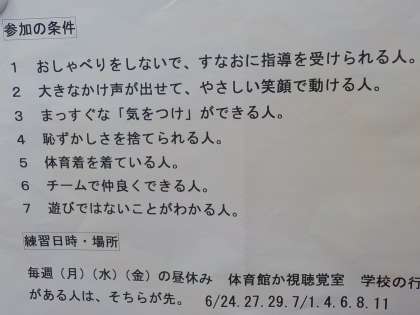 参加の条件
1 おしゃべりをしないで、すなおに指導を受けられる人。
2 大きなかけ声が出せて、やさしい笑顔で動ける人。
3 まっすぐな「気をつけ」ができる人。
4 恥ずかしさを捨てられる人。
5 体育着を着ている人。
6 チームで仲良くできる人。
7 遊びではないことがわかる人。
練習日時・場所
毎週（月）（水）（金）の昼休み 体育館か視聴覚室 学校の行
がある人は、そちらが先。 6/24.27.29.7/1.4.6.8.11